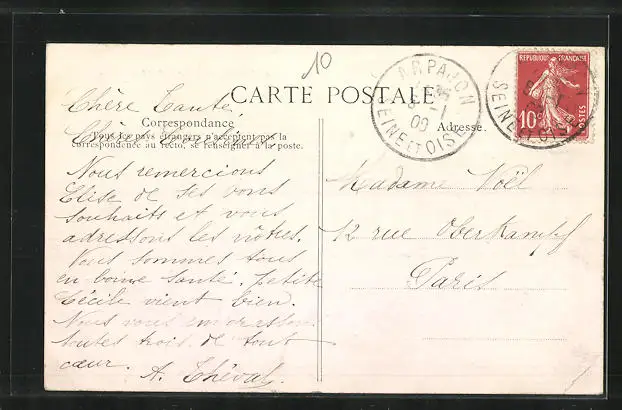 10
CARTE POSTALE
Correspondance
Tous les pays étrangers n'acceptent pas la
correspondance au recto, se renseigner à la poste.
Adresse.
ARPAJON
SEINE ET OISE
REPUBLIQUE FRANÇAISE
10c
POSTES
SEINE ET OISE
Chère Tante
Nous remercions
Elise de ses bons
souhaits et vous
adressons les nôtres.
Nous sommes tous
en bonne santé. Petite
Cécile vient bien.
Nous vous embrassons
toutes trois de tout
cœur.
A. Chéval
Madame Noël
12 rue Oberkampf
Paris